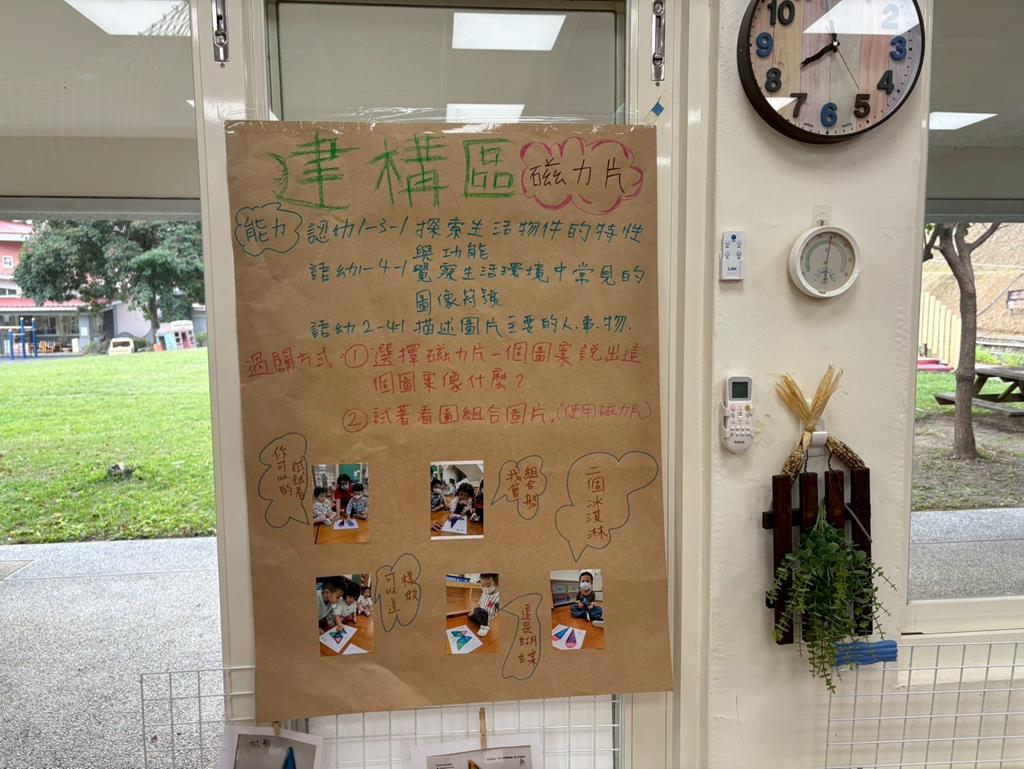 建構區
磁力片
能力
認幼1-3-1 探索生活物件的特性
與功能
語幼1-4-1 覺察生活環境中常見的
圖像符號
語幼2-4-1 描述圖片主要的人.事.物.
過關方式 ① 選擇磁力片一個圖案說出這
個圖案像什麼?
② 試著看圖組合圖片.(使用磁力片)
你可以的
試試看
我會
組合船
二個冰淇淋
可以這
樣做
這是蝴蝶
帆船
10
2
9
3
8
4
7
6
5